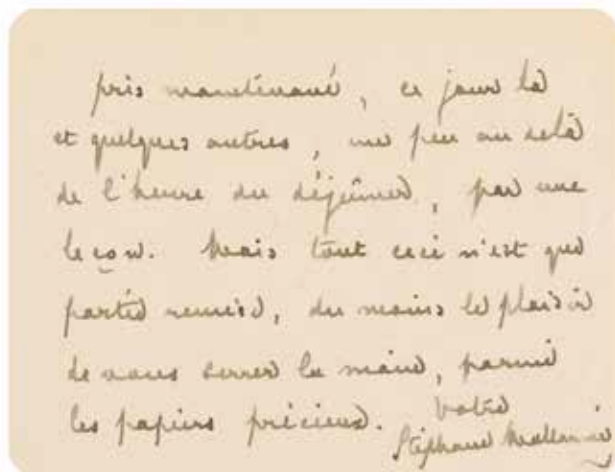 pris maintenant, ce jour là
et quelques autres, un peu au delà
de l'heure du déjeuner, par une
leçon. Mais tout ceci n'est que
partie remise, du moins le plaisir
de vous serrer la main, parmi
les papiers précieux. Votre
Stéphane Mallarmé